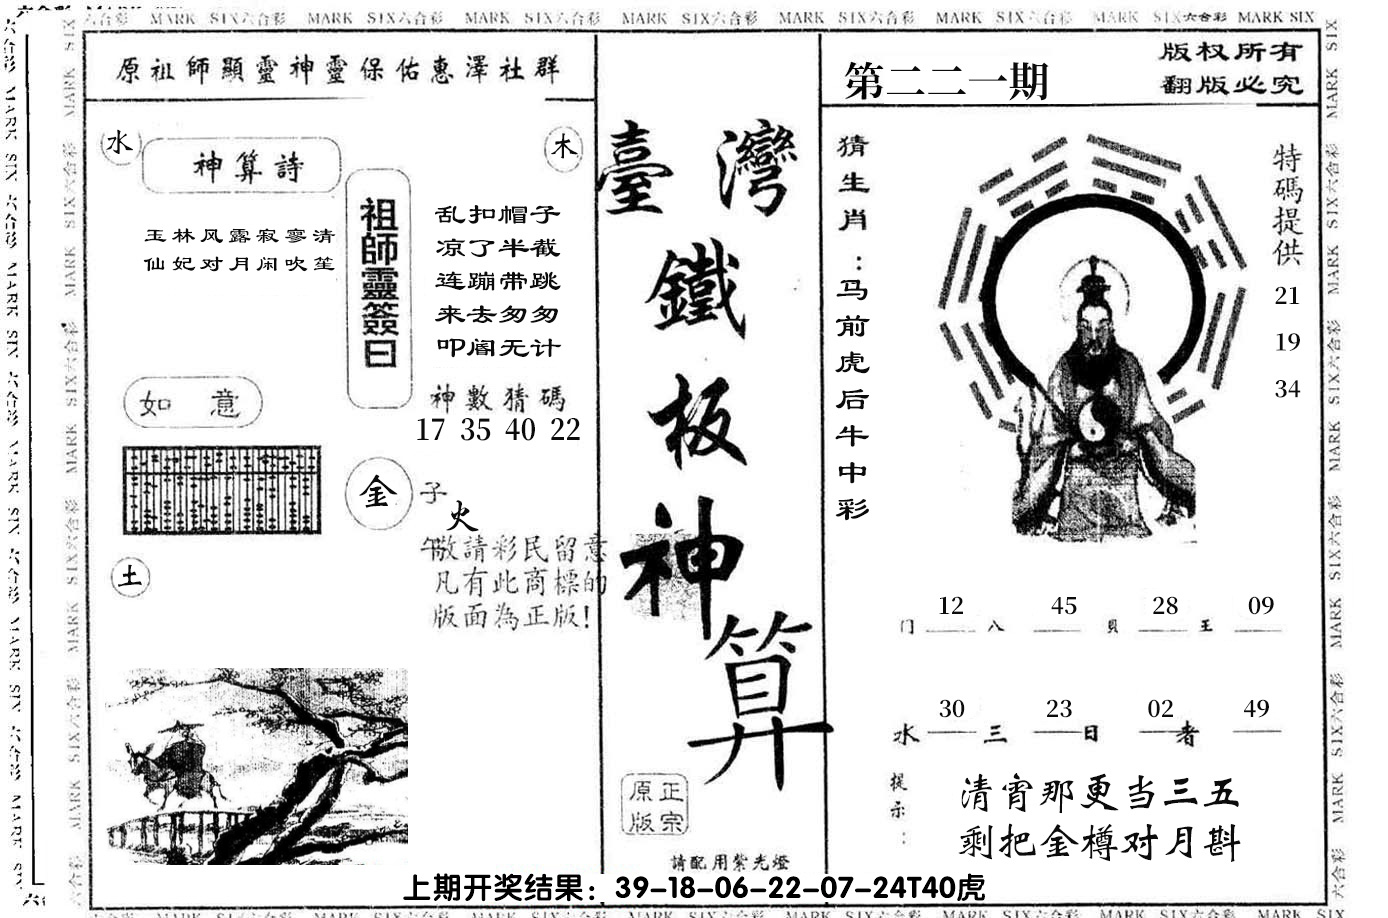 MARK SIX六合彩 MARK SIX六合彩 MARK SIX六合彩 MARK SIX六合彩 MARK SIX六合彩 MARK SIX六合彩 MARK SIX六合彩 MARK SIX
原祖師顯靈神靈保佑惠澤社群
水
神算詩
木
玉林风露寂寥清
仙妃对月闲吹笙
祖師靈簽曰
乱扣帽子
凉了半截
连蹦带跳
来去匆匆
叩阍无计
神數猜碼
17 35 40 22
如意
金
子
火
午
土
敬請彩民留意
凡有此商標的
版面為正版!
臺灣
鐵
板
神
算
原正
版宗
請配用紫光燈
第二二一期
版权所有
翻版必究
猜生肖:马前虎后牛中彩
特碼提供
21
19
34
12 45 28 09
门 八 貝 王
30 23 02 49
水 三 日 者
提示:
清宵那更当三五
剩把金樽对月斟
上期开奖结果：39-18-06-22-07-24T40虎